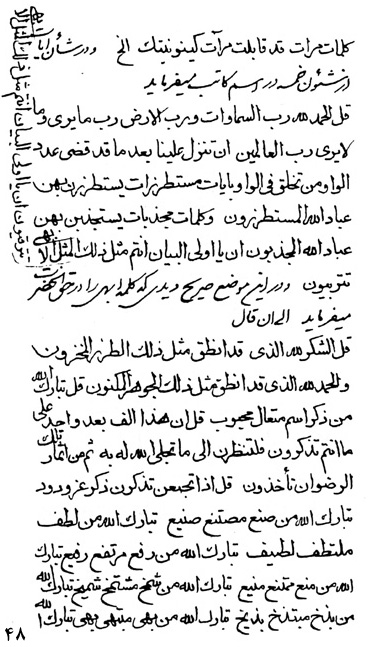 كلمات مرات قد قابلت مرآت كينونيتك الخ ودر شأن
از شئون خمسه در اسم كاتب ميفرمايد
قل الحمد لله رب السماوات ورب الارض رب ما يرى و
لا يرى رب العالمين ان تنزل علينا بعد ما قد قضى عدد
الواو من تخلق فى الواو بايات مستطرزات يستطرزن بهن
عباد الله المستطرزون وكلمات مجذبات يستجذبن بهن
عباد الله المجذبون ان يا اولى البيان انتم مثل ذلك المثل
تتربيون ودر اين موضع صريح ديدى كه كلمه ابهى را در حق
ميفرمايد الى ان قال
قل الشكر لله الذى قد انطق مثل ذلك الطرز المخزون
والحمد لله الذى قد انطق مثل ذلك الجوهر المكنون قل تبارك الله
من ذكر اسم متعال محبوب قل ان هذا الف بعد واحد على
ما انتم تذكرون فلتنظرن الى ما تجلى الله له به ثم من اثمار تلك
الرضوان تأخذون قل اذا تجمعن تذكرون ذكر عز ودود
تبارك الله من صنع مصتنع صنيع تبارك الله من لطف
ملتطف لطيف تبارك الله من رفع مرتفع رفيع تبارك
الله من منع ممتنع منيع تبارك الله من شمخ مشتمخ شميخ تبارك الله
من بذخ مبتذخ بذيخ تبارك الله من بهى مبتهى بهى تبارك الله
٤٨
يتربيون ان يا اولى البيان انتم مثل ذلك المثل